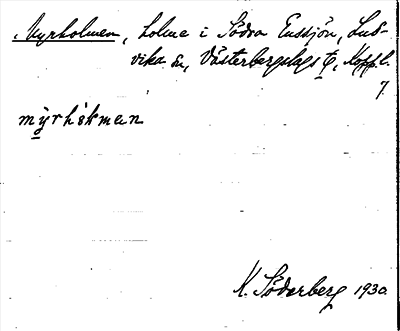 Myrholmen, holme i Södra Enssjön, Lud-
vika sn, Västerbergslags t, Kopp. l.
7
mỳrhólmen
K. Söderberg 1930.